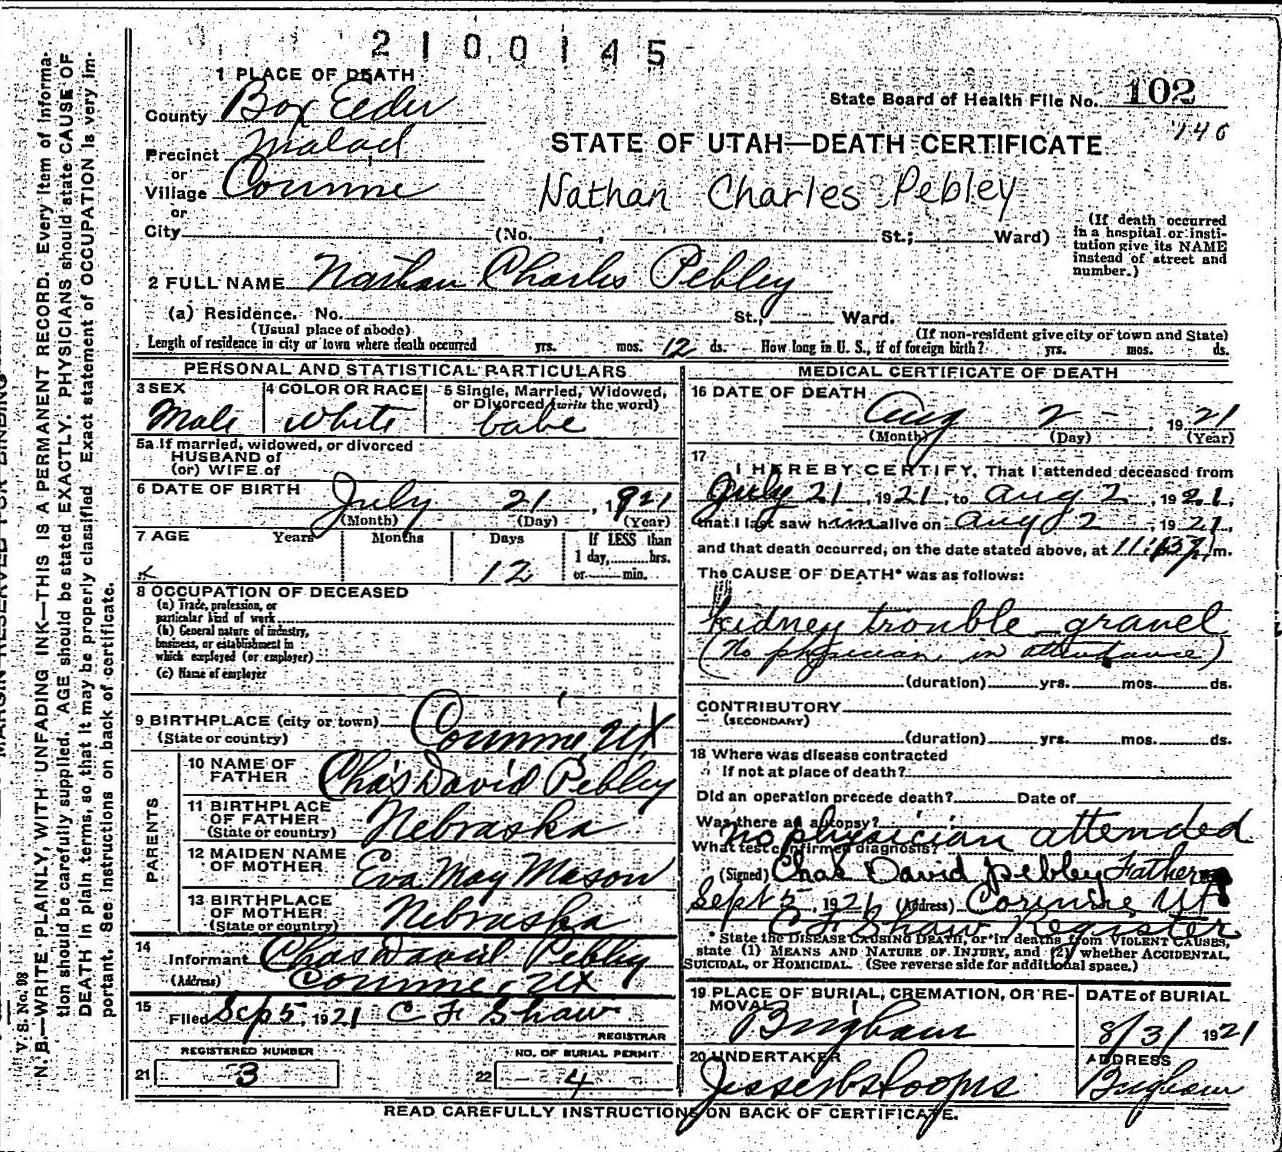 2100145
1 PLACE OF DEATH
County Box Elder
State Board of Health File No. 102
146
Precinct Malad
STATE OF UTAH—DEATH CERTIFICATE
or
Village Corinne
Nathan Charles Pebley
or
City (No. , St.; Ward)
(If death occurred in a hospital or institution give its NAME instead of street and number.)
2 FULL NAME Nathan Charles Pebley
(a) Residence. No. St., Ward.
(Usual place of abode) (If non-resident give city or town and State)
Length of residence in city or town where death occurred yrs. mos. 12 ds. How long in U. S., if of foreign birth? yrs. mos. ds.
PERSONAL AND STATISTICAL PARTICULARS
3 SEX 4 COLOR OR RACE 5 Single, Married, Widowed,
or Divorced (write the word)
Male White babe
5a If married, widowed, or divorced
HUSBAND of
(or) WIFE of
6 DATE OF BIRTH July 21, 1921
(Month) (Day) (Year)
7 AGE Years Months Days If LESS than
1 day, hrs.
12 or min.
8 OCCUPATION OF DECEASED
(a) Trade, profession, or
particular kind of work
(b) General nature of industry,
business, or establishment in
which employed (or employer)
(c) Name of employer
9 BIRTHPLACE (city or town) Corinne, Ut
(State or country)
PARENTS
10 NAME OF
FATHER Chas David Pebley
11 BIRTHPLACE
OF FATHER Nebraska
(State or country)
12 MAIDEN NAME
OF MOTHER Eva May Mason
13 BIRTHPLACE
OF MOTHER Nebraska
(State or country)
14
Informant Chas David Pebley
(Address) Corinne, Ut
15
Filed Sep 5, 1921 C F Shaw
REGISTRAR
REGISTERED NUMBER NO. OF BURIAL PERMIT
21 3 22 4
MEDICAL CERTIFICATE OF DEATH
16 DATE OF DEATH
Aug 2 , 1921
(Month) (Day) (Year)
17
I HEREBY CERTIFY, That I attended deceased from
July 21, 1921, to Aug 2, 1921,
that I last saw him alive on Aug 2, 1921,
and that death occurred, on the date stated above, at m.
The CAUSE OF DEATH* was as follows:
kidney trouble gravel
(No physician in attendance)
(duration) yrs. mos. ds.
CONTRIBUTORY
(SECONDARY)
(duration) yrs. mos. ds.
18 Where was disease contracted
If not at place of death?
Did an operation precede death? Date of
Was there an autopsy?
no physician attended
What test confirmed diagnosis?
(Signed) Chas David Pebley Father
Sept 5, 1921 (Address) Corinne Ut
C F Shaw Register
* State the DISEASE CAUSING DEATH, or in deaths from VIOLENT CAUSES,
state (1) MEANS AND NATURE OF INJURY, and (2) whether ACCIDENTAL,
SUICIDAL, or HOMICIDAL. (See reverse side for additional space.)
19 PLACE OF BURIAL, CREMATION, OR RE- DATE of BURIAL
MOVAL
Brigham 8/3/ 1921
20 UNDERTAKER ADDRESS
Brigham
READ CAREFULLY INSTRUCTIONS ON BACK OF CERTIFICATE.
MARGIN RESERVED FOR BINDING
V. S. No. 98
N. B.—WRITE PLAINLY, WITH UNFADING INK—THIS IS A PERMANENT RECORD. Every item of informa-
tion should be carefully supplied. AGE should be stated EXACTLY. PHYSICIANS should state CAUSE OF
DEATH in plain terms, so that it may be properly classified. Exact statement of OCCUPATION is very im-
portant. See instructions on back of certificate.